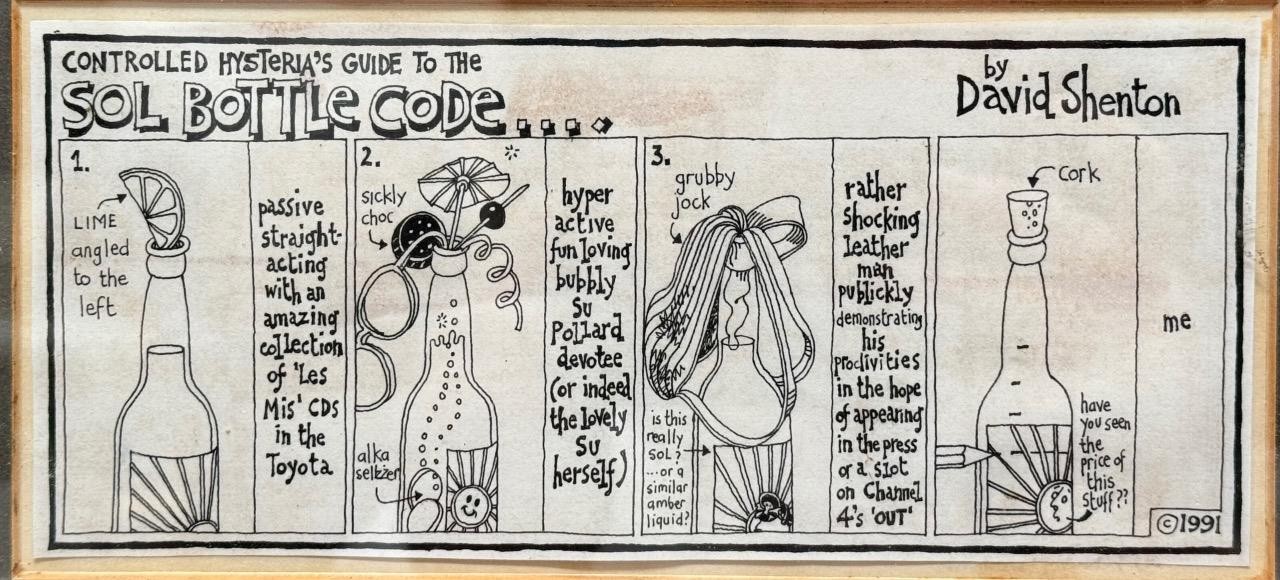 CONTROLLED HYSTERIA'S GUIDE TO THE
SOL BOTTLE CODE....
by
David Shenton
1.
LIME
angled
to the
left
passive
straight-
acting
with an
amazing
collection
of 'Les
Mis' CDs
in the
Toyota
2.
sickly
choc
alka
seltzer
hyper
active
fun loving
bubbly
Su
Pollard
devotee
(or indeed
the lovely
Su
herself)
3.
grubby
jock
is this
really
SOL?
...or a
similar
amber
liquid?
rather
shocking
leather
man
publickly
demonstrating
his
proclivities
in the hope
of appearing
in the press
or a slot
on Channel
4's 'OUT'
cork
have
you seen
the
price of
this
stuff??
me
©1991